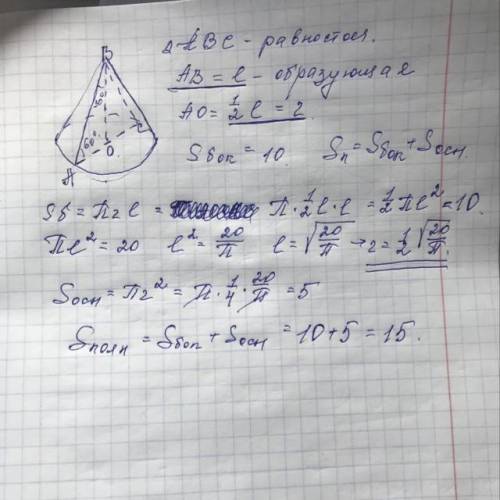 B
30°
60°
O
C
A
Δ ABC - равностор.
AB = l - образующая
AO = 1/2 l = r
Sбок = 10. Sп = Sбок + Sосн.
Sб = Пrl = П · 1/2 l · l = 1/2 Пl² = 10.
Пl² = 20 l² = 20/П l = √20/П → r = 1/2 √20/П.
Sосн = Пr² = П · 1/4 · 20/П = 5
Sполн = Sбок + Sосн = 10 + 5 = 15.